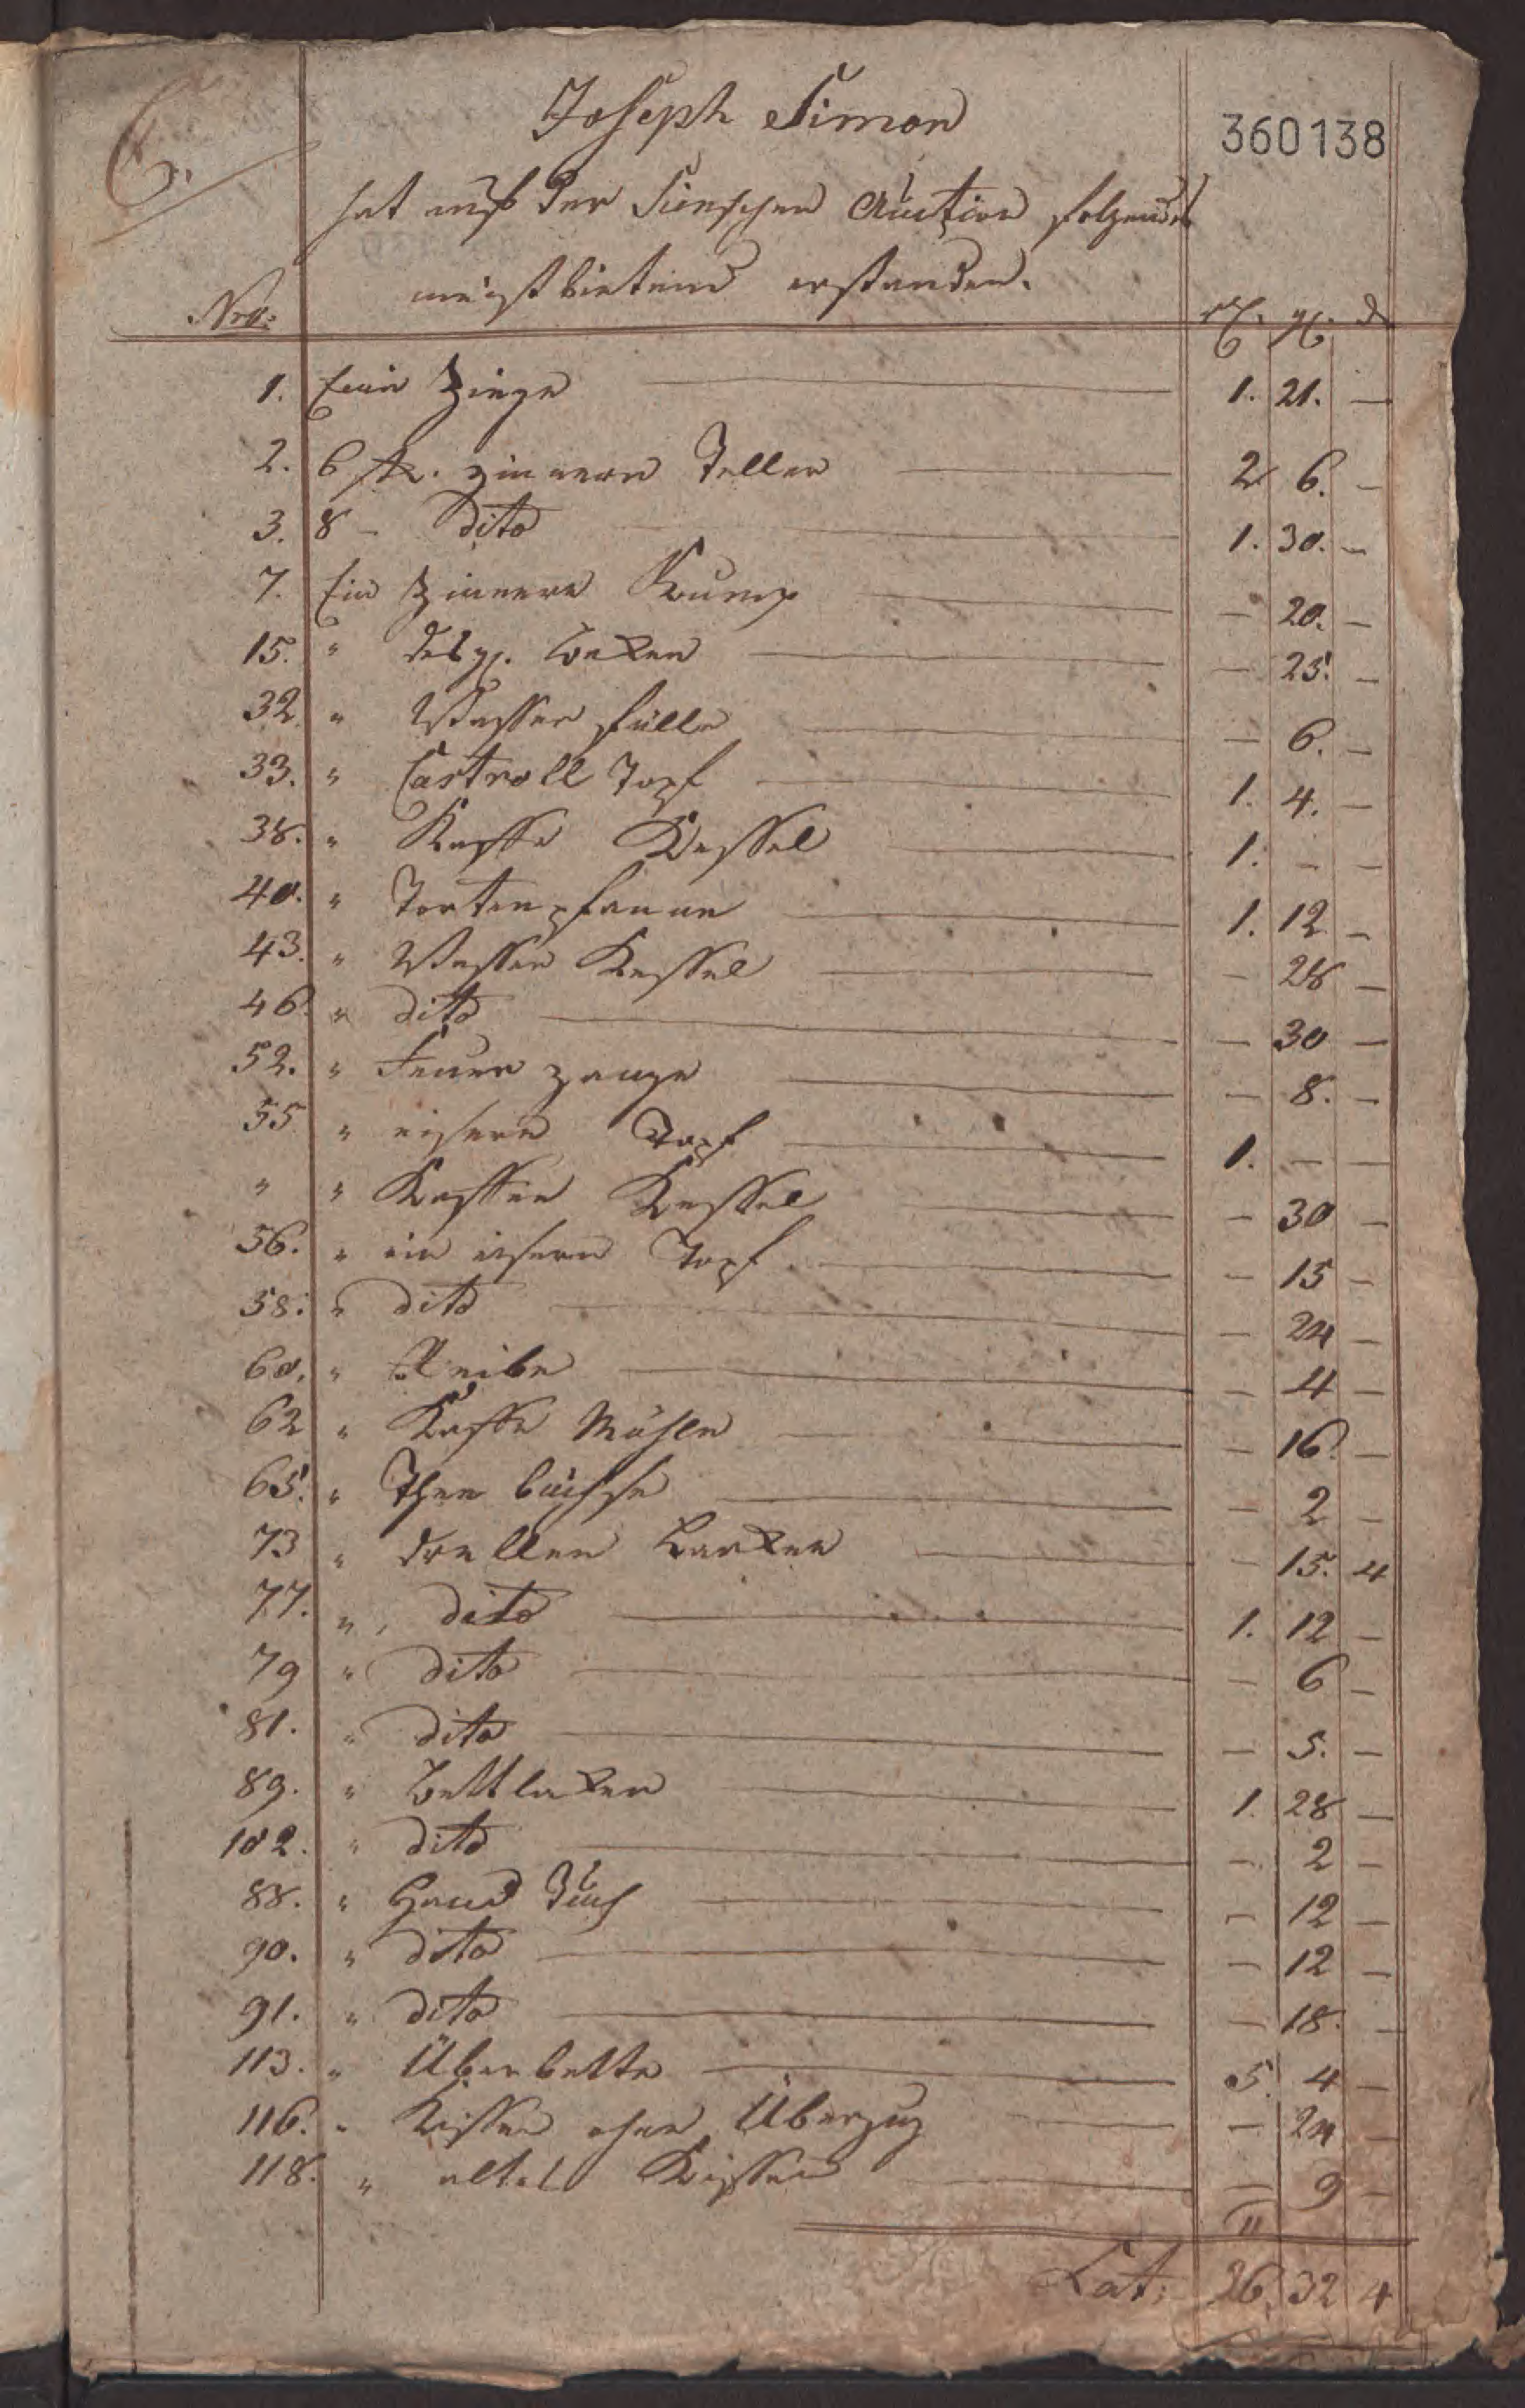 6.
Joseph Simon
360138
hat auf der Auction folgendes
meistbietend erstanden.
Nro: rt. gl. d
1. Eine Ziege 1. 21. —
2. 6 stk. zinnern Teller 2 6. —
3. 8 — dito 1. 30. —
7. Ein Zinnern Kump — 20. —
15. " desgl. — 25. —
32. " Wasser fülle — 6. —
33. " Castroll Topf 1. 4. —
38. " Kaffe Kessel 1. — —
40. " Tortenpfanne 1. 12 —
43. " Wasser Kessel — 28 —
46. " dito — 30 —
52. " Feuer zange — 8. —
55 " eisern Topf 1. — —
" " Kaffee Kessel — 30 —
56. " ein eisern Topf — 15 —
58. " dito — 24 —
60. " Reibe — 4 —
62 " Kaffe Mühle — 16. —
65. " Thee büchse — 2 —
73 " drellen Lacken — 15. 4
77. " dito 1. 12 —
79 " dito — 6 —
81. " dito — 5. —
89. " Bettlaken 1. 28 —
102. " dito — 2 —
88. " Hand Tuch — 12 —
90. " dito — 12 —
91. " dito — 18. —
113. " Überbette 5. 4 —
116. " Kissen ohne Überzug — 24 —
118. " altes Kissen — 9 —
Lat: 26. 32 4